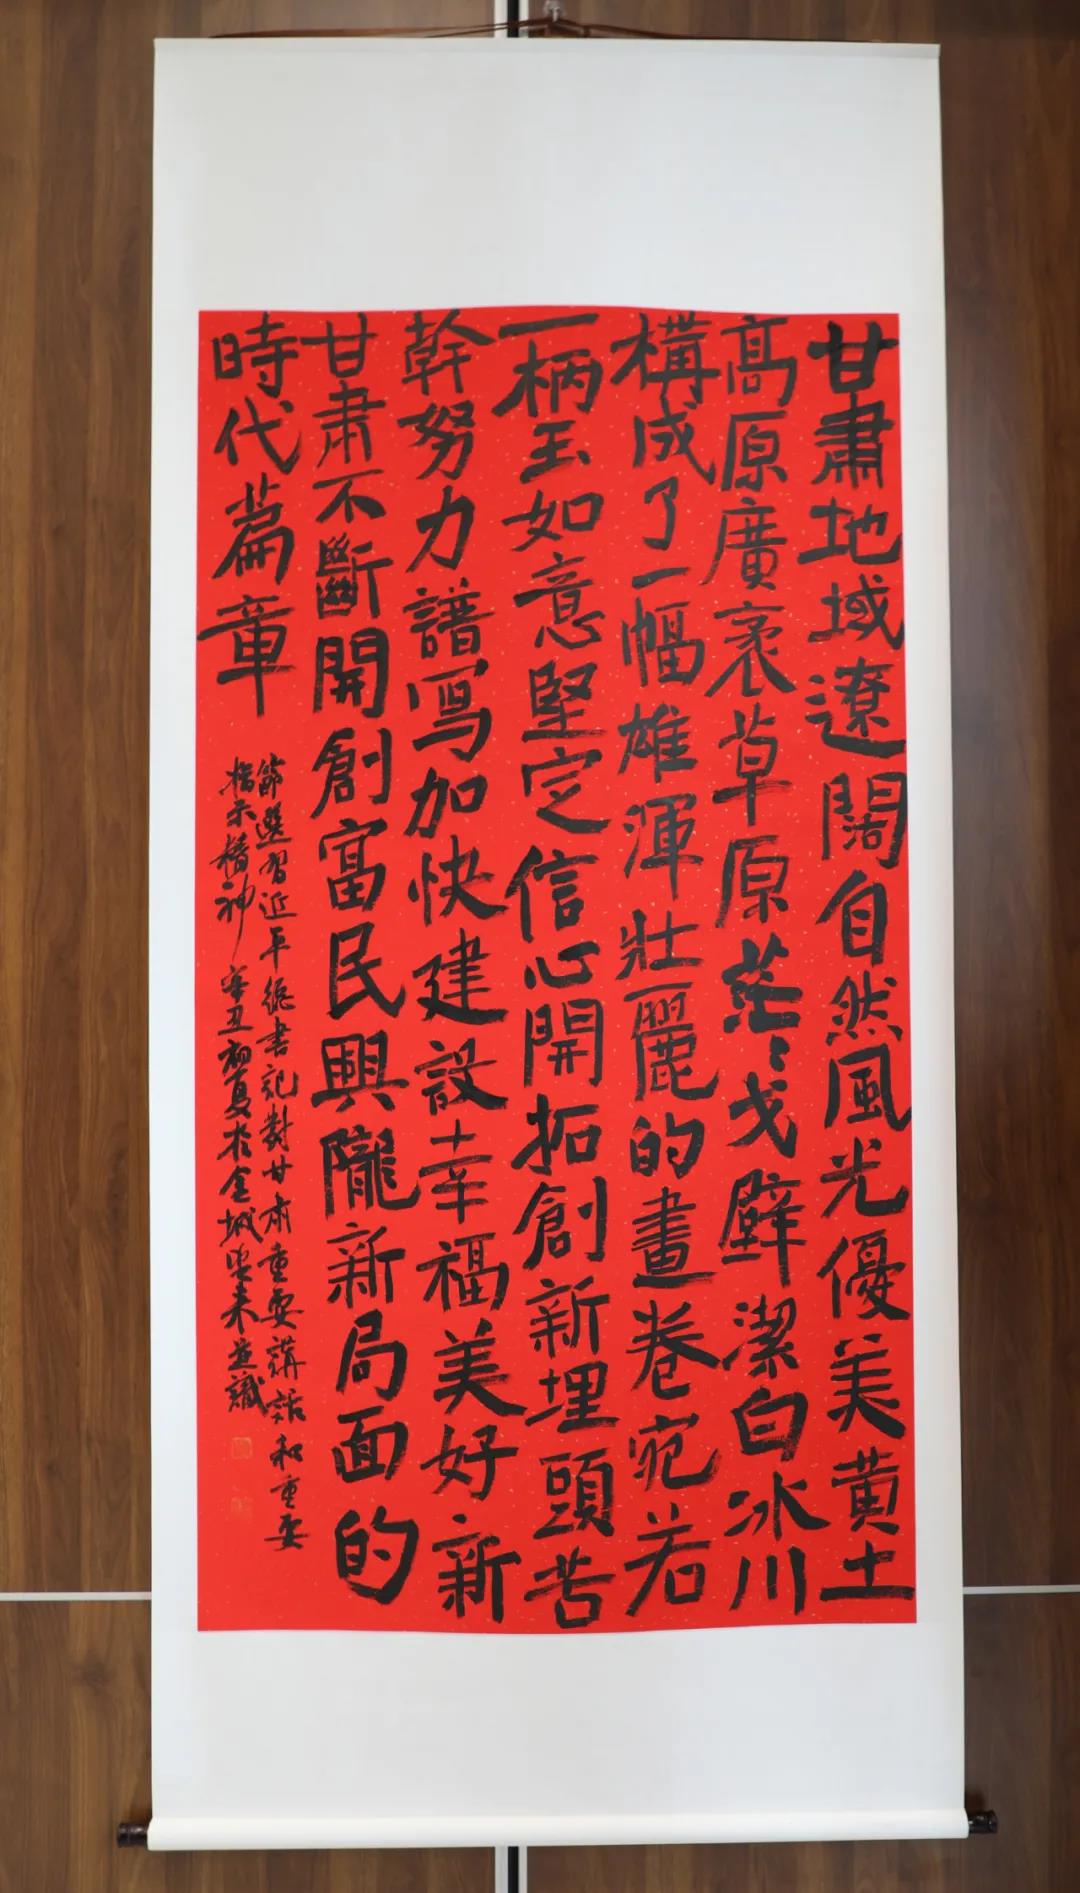 甘肅地域遼闊自然風光優美黄土
高原廣袤草原茫〻戈壁潔白冰川
構成了一幅雄渾壯麗的畫卷宛若
一柄玉如意堅定信心開拓創新埋頭苦
幹努力譜寫加快建設幸福美好新
甘肅不斷開創富民興隴新局面的
時代篇章
節選習近平總書記對甘肅重要講話和重要
指示精神 辛丑初夏於金城 并識